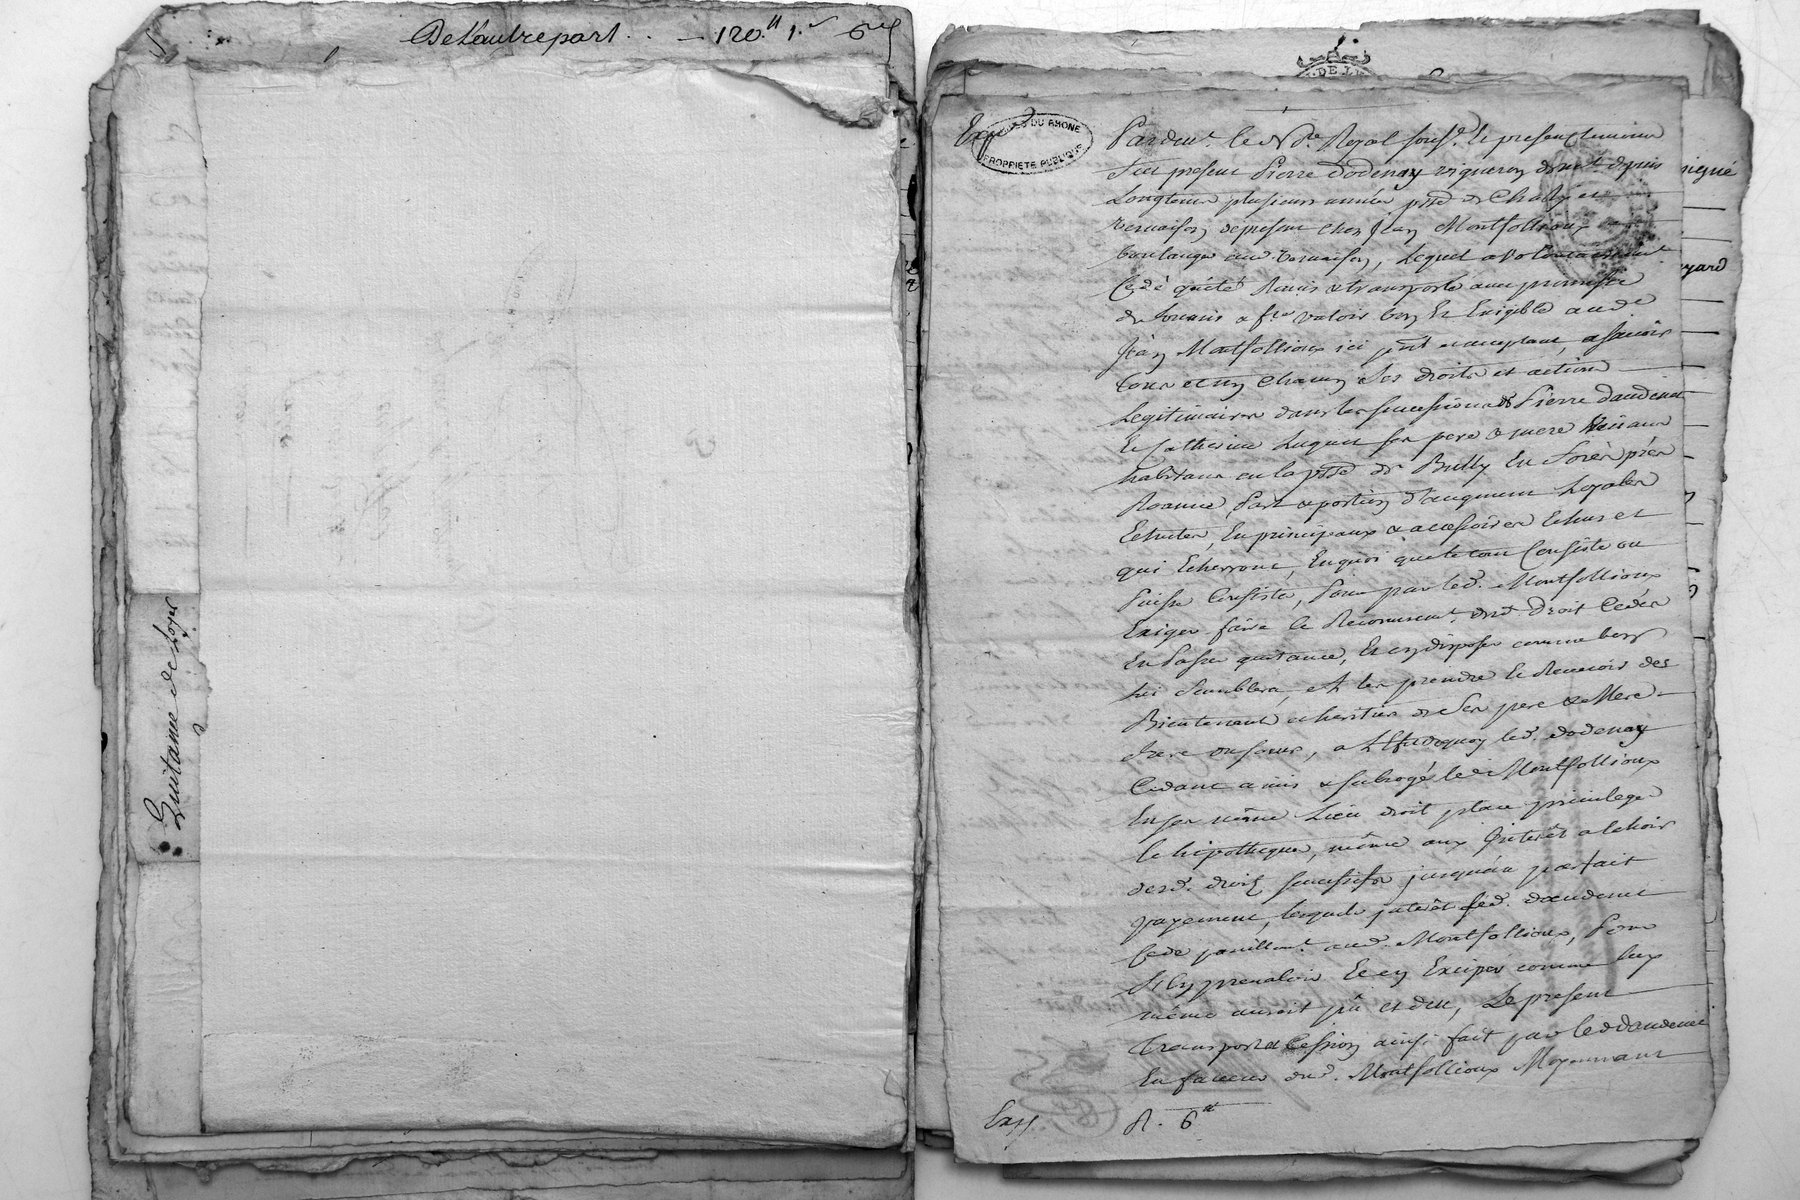 De l'autre part . . — 120.ll 1.s 6d
Quitance de Loyer
DE L
Exp
DU RHONE
PROPRIETE PUBLIQUE
Pardevt. le Nre. Royal sousé. et presents temoins
fut present Pierre dodenay vigneron demt. depuis
Longtems plusieurs année psse de Charly et
vernaison de present chez Jean Montfollioux
boulanger aud. vernaison, Lequel a volontairement
Cedé quité Remis & transporté avec promesse
de fournir & fre valoir bon Et Exigible aud
Jean Montfollioux ici pnt et acceptant, a savoir
tous et un chacun Ses droits et actions
Legitimaires dans les successions de Pierre daudenet
Et Catherine Luquet ses pere & mere Vivans
habitans en la psse de Bully En Forès près
Roanne, Part & portion d'augment Legales
Echutes, En principaux & accessoires Echus et
qui Echerront, En quoi que le tout Consiste ou
Puisse Consister, Pour par led. Montfollioux
Exiger faire le Recouvremt. desd. droit Cedés
En Passer quitance, Et en disposer comme bon
lui Semblera, et les prendre et Recevoir des
Bientenant et heritier de Ses pere & Mere
frere ou soeur, a led. dodenay
Cedant a mis & subrogé led Montfollioux
En son même Lieu droit place privilege
et hipotheque, même aux Interêt a echoir
desd. droits successifs jusqu'au parfait
payement, lesquels interêt led. daudenet
Cede pareillemt. aud. Montfollioux, Pour
S'En prevaloir Et en Exciper comme luy
même auroit pû et deu, Le present
transport et Cession ainsi fait par led daudenet
En faveur dud. Montfollioux Moyennant
R. 6
igné
yard